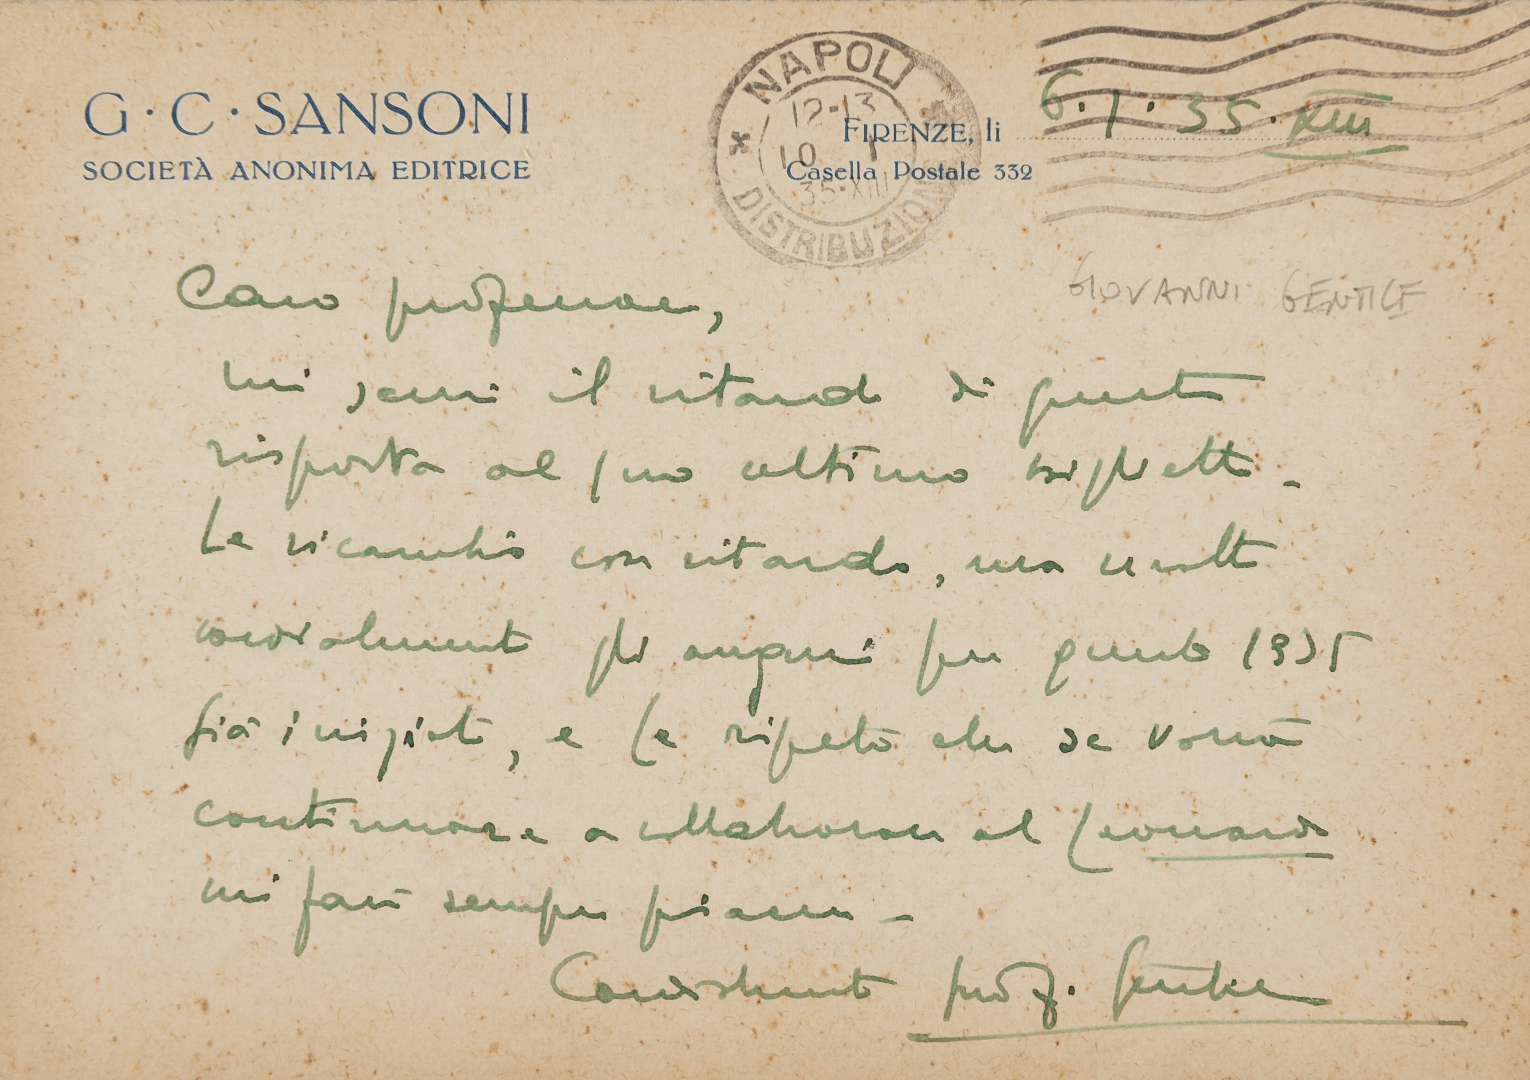 G·C·SANSONI
SOCIETÀ ANONIMA EDITRICE
NAPOLI
12-13
10 I
35·XIII
DISTRIBUZIONE
FIRENZE, li 6.1.35.XIII
Casella Postale 332
GIOVANNI GENTILE
Caro professore,
mi scusi il ritardo di questa
risposta al suo ultimo biglietto.
Le ricambio con ritardo, ma molto
cordialmente gli auguri per questo 1935
già iniziato, e Le ripeto che se vorrà
continuare a collaborare al Leonardo
mi farà sempre piacere.
Cordialmente